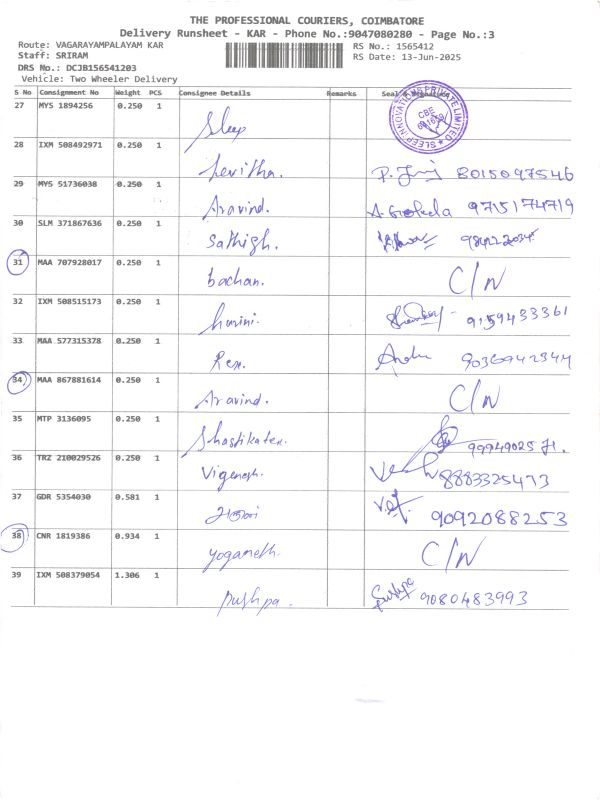 THE PROFESSIONAL COURIERS, COIMBATORE
Delivery Runsheet - KAR - Phone No.:9047080280 - Page No.:3
Route: VAGARAYAMPALAYAM KAR RS No.: 1565412
Staff: SRIRAM RS Date: 13-Jun-2025
DRS No.: DCJB156541203
Vehicle: Two Wheeler Delivery
S No Consignment No Weight PCS Consignee Details Remarks Seal & Signature
27 MYS 1894256 0.250 1 Sleep
SLEEP INNOVATIONS PRIVATE LIMITED CBE
28 IXM 508492971 0.250 1 8015097546
29 MYS 51736038 0.250 1 Aravind. 9715174719
30 SLM 371867636 0.250 1 Sathish.
31 MAA 707928017 0.250 1 bachan. C/N
32 IXM 508515173 0.250 1 9159433361
33 MAA 577315378 0.250 1
34 MAA 867881614 0.250 1 Aravind. C/N
35 MTP 3136095 0.250 1
36 TRZ 210029526 0.250 1 Vigenesh. 8883325473
37 GDR 5354030 0.581 1 9092088253
38 CNR 1819386 0.934 1 yoganeth. C/N
39 IXM 508379054 1.306 1 pushpa. pushpa 9080483993